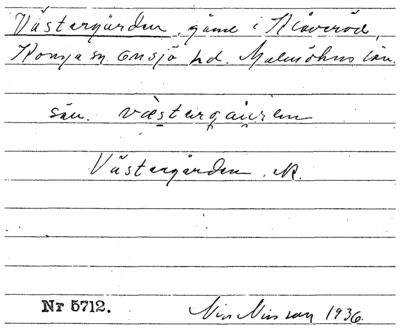 Västergården, gård i Klåveröd,
Konga sn. Onsjö hd. Malmöhus län.
sån. västergå̢n
Västergården. M.
Nr 5712. Nils Nilsson 1936.